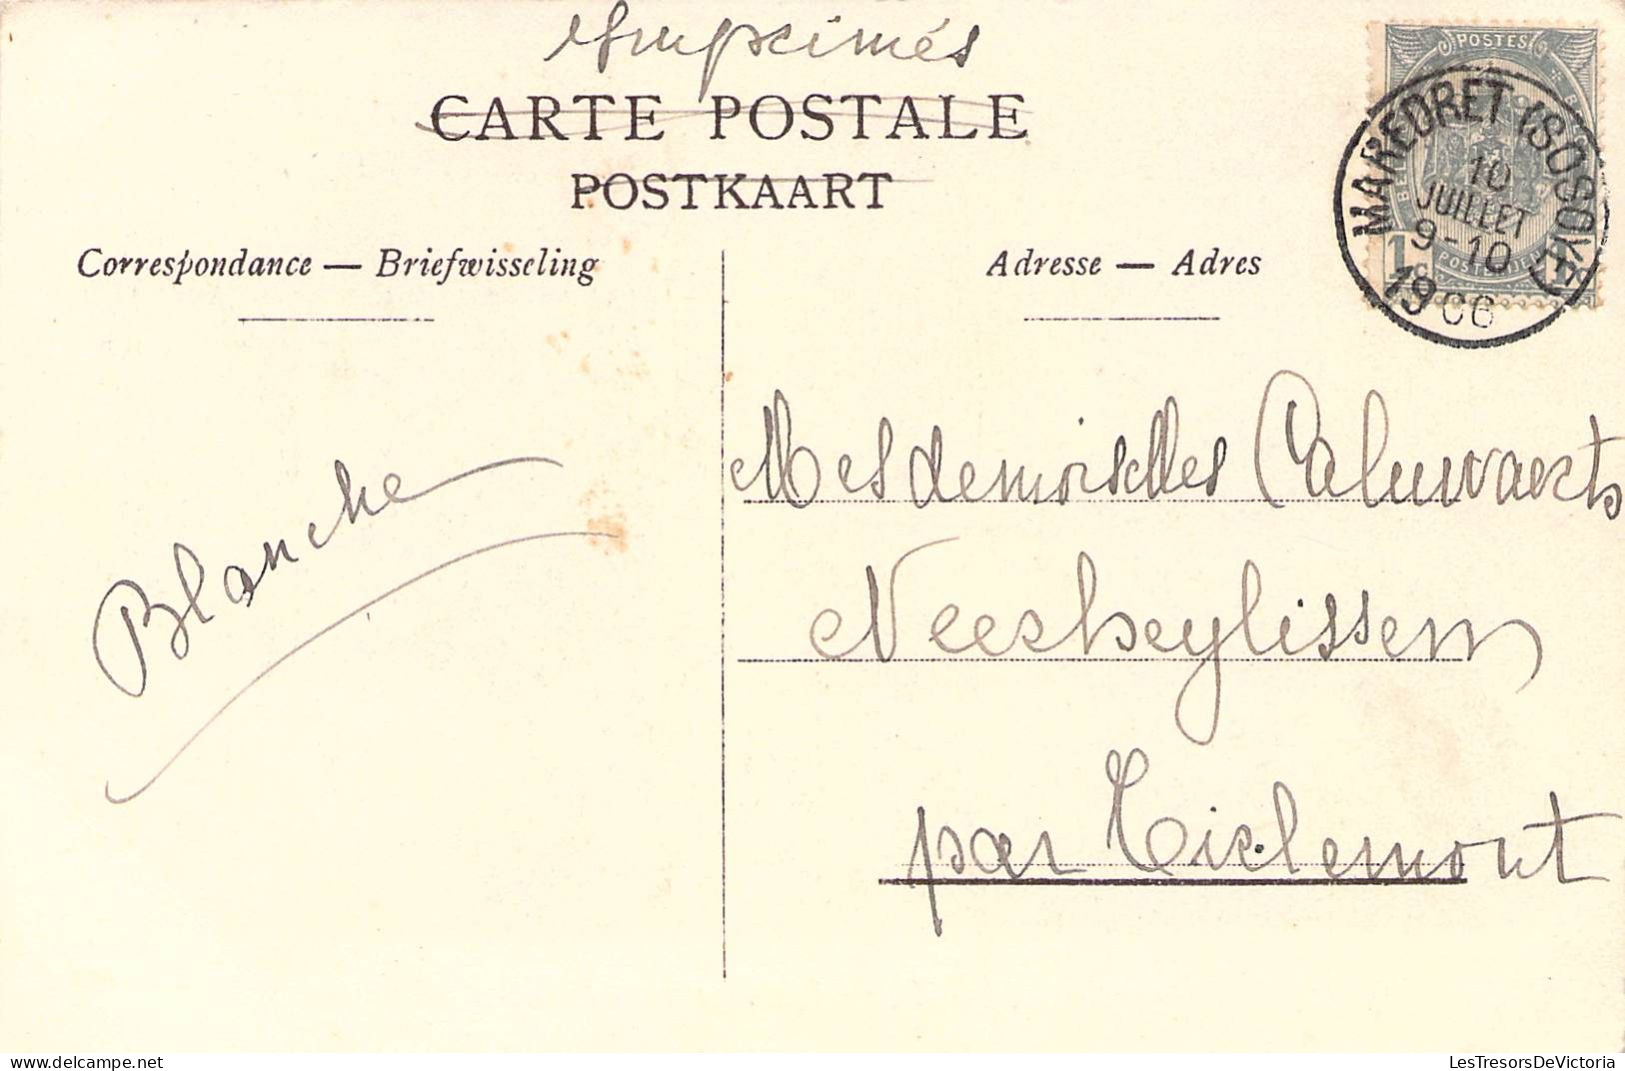 Imprimés
CARTE POSTALE
POSTKAART
POSTES
MAREDRET (SOSOYE)
10
JUILLET
9-10
1906
Correspondance — Briefwisseling
Adresse — Adres
Blanche
Mesdemoiselles Caluwaerts
Neerheylissem
par Tirlemont
Delcampe.net
LesTresorsDeVictoria